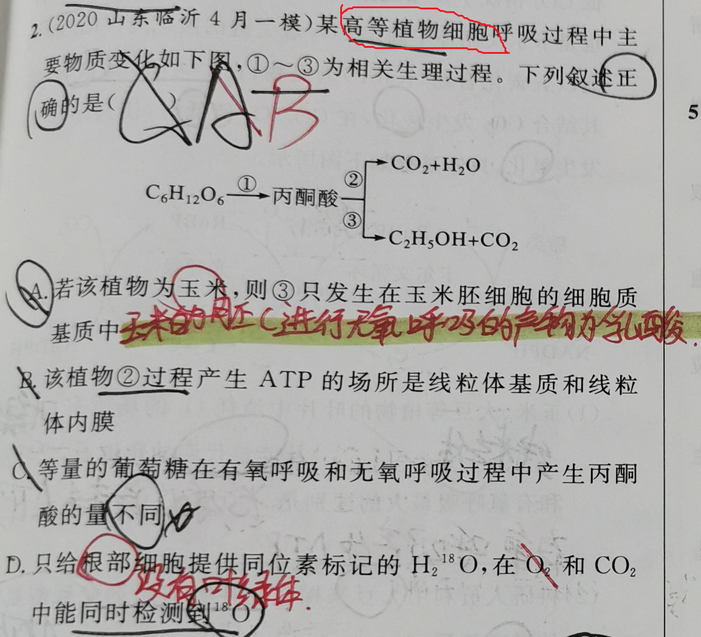 2.(2020 山东临沂 4 月一模)某高等植物细胞呼吸过程中主
要物质变化如下图,①～③为相关生理过程。下列叙述正
确的是(  )
B
②→CO₂+H₂O
C₆H₁₂O₆ ①→丙酮酸
③→C₂H₅OH+CO₂
A.若该植物为玉米,则③只发生在玉米胚细胞的细胞质
基质中 玉米的胚(进行无氧呼吸的产物为乳酸.
B.该植物②过程产生 ATP 的场所是线粒体基质和线粒
体内膜
C.等量的葡萄糖在有氧呼吸和无氧呼吸过程中产生丙酮
酸的量不同
D.只给根部细胞提供同位素标记的 H₂¹⁸O,在 O₂ 和 CO₂
没有叶绿体.
中能同时检测到¹⁸O
5